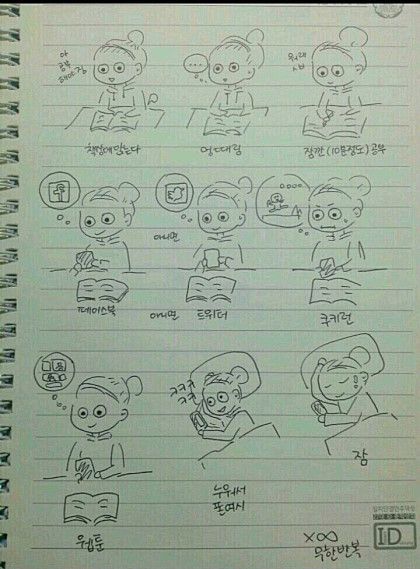 아
공부
해야징
책상에 앉는다
...
멍때림
잠깐(10분정도)공부
페이스북
아니면
아니면
트위터
쿠키런
웹툰
ㅋㅋㅋ
ㅋㅋ
누워서
폰여시
잠
X∞
무한반복
ID